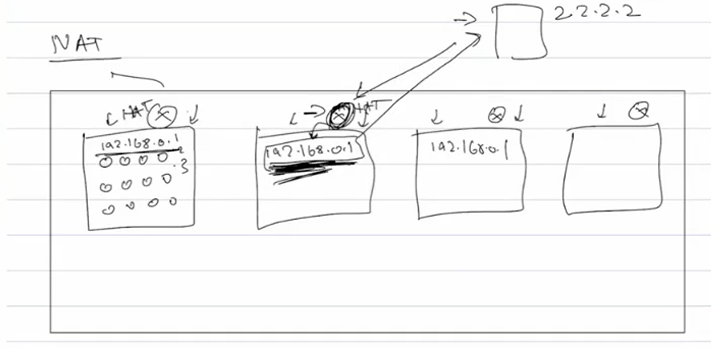 2.2.2.2
NAT
NAT
NAT
192.168.0.1
.2
.3
192.168.0.1
192.168.0.1